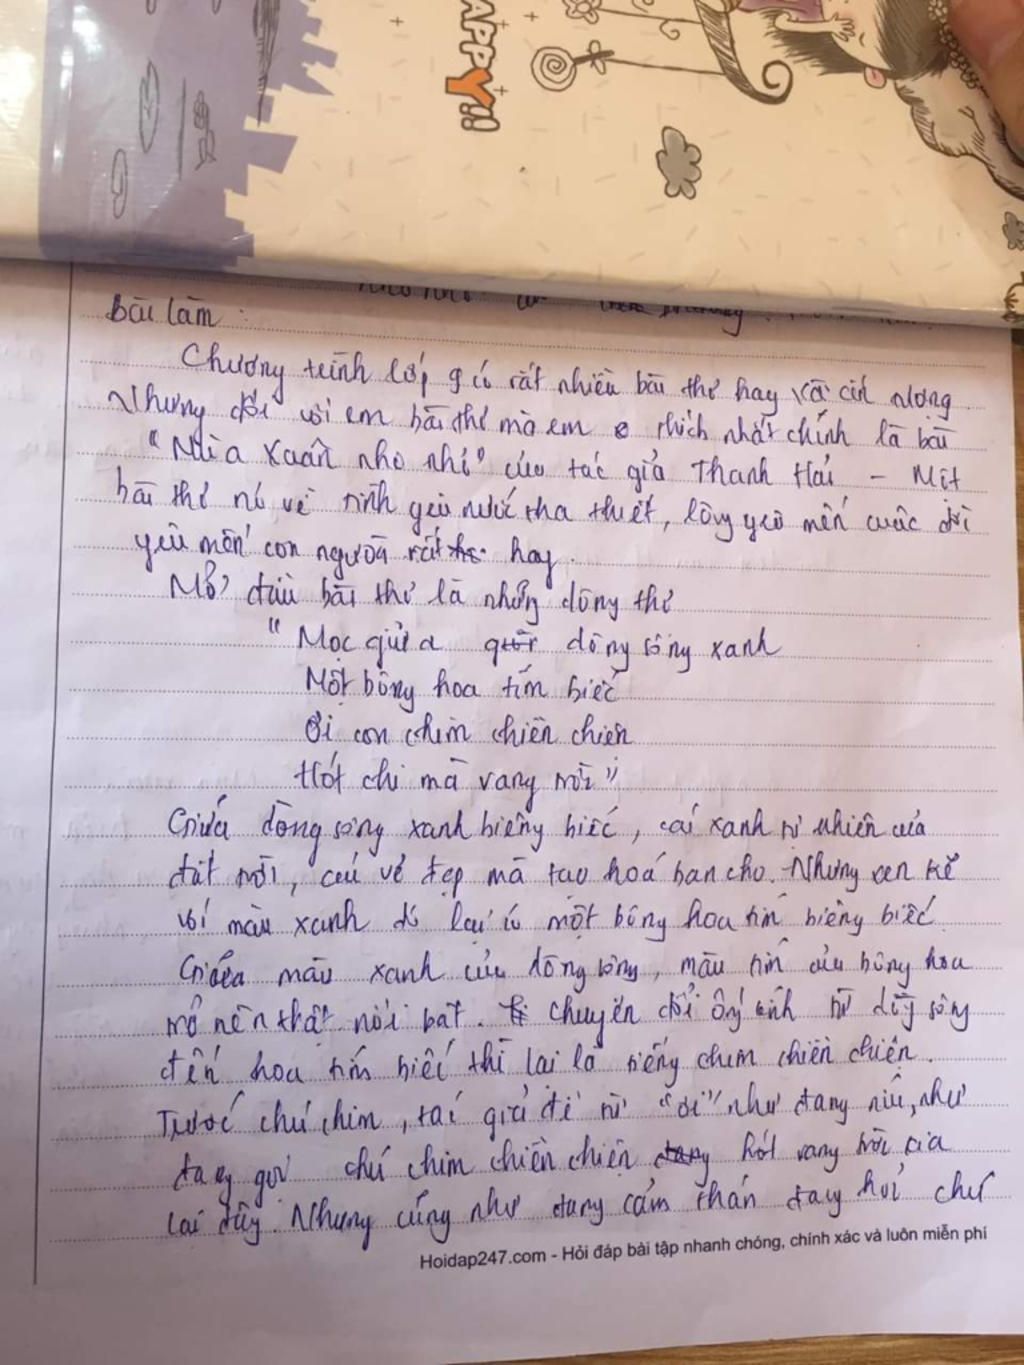 APPY!!
Bài làm :
Chương trình lớp 9 có rất nhiều bài thơ hay và
Nhưng đối với em bài thơ mà em thích nhất chính là bài
"Mùa Xuân nho nhỏ" của tác giả Thanh Hải – Một
bài thơ nói về tình yêu nước tha thiết, lòng yêu mến cuộc đời
yêu mến con người rất hay.
Mở đầu bài thơ là những dòng thơ
" Mọc giữa dòng sông xanh
Một bông hoa tím biếc
Ơi con chim chiền chiện
Hót chi mà vang trời"
Giữa dòng sông xanh biêng biếc, cái xanh tự nhiên của
đất trời, cái vẻ đẹp mà tạo hoá ban cho. Nhưng xen kẽ
với màu xanh đó lại có một bông hoa tím biêng biếc
Giữa màu xanh của dòng sông, màu tím của bông hoa
trở nên thật nổi bật. chuyển đổi ống kính từ dòng sông
đến hoa tím biếc thì lại là tiếng chim chiền chiện.
Trước chú chim, tác giả để từ "ơi" như đang níu, như
đang gọi chú chim chiền chiện hót vang trời kia
lại đây. Nhưng cũng như đang cảm thán đang hỏi chú
Hoidap247.com - Hỏi đáp bài tập nhanh chóng, chính xác và luôn miễn phí